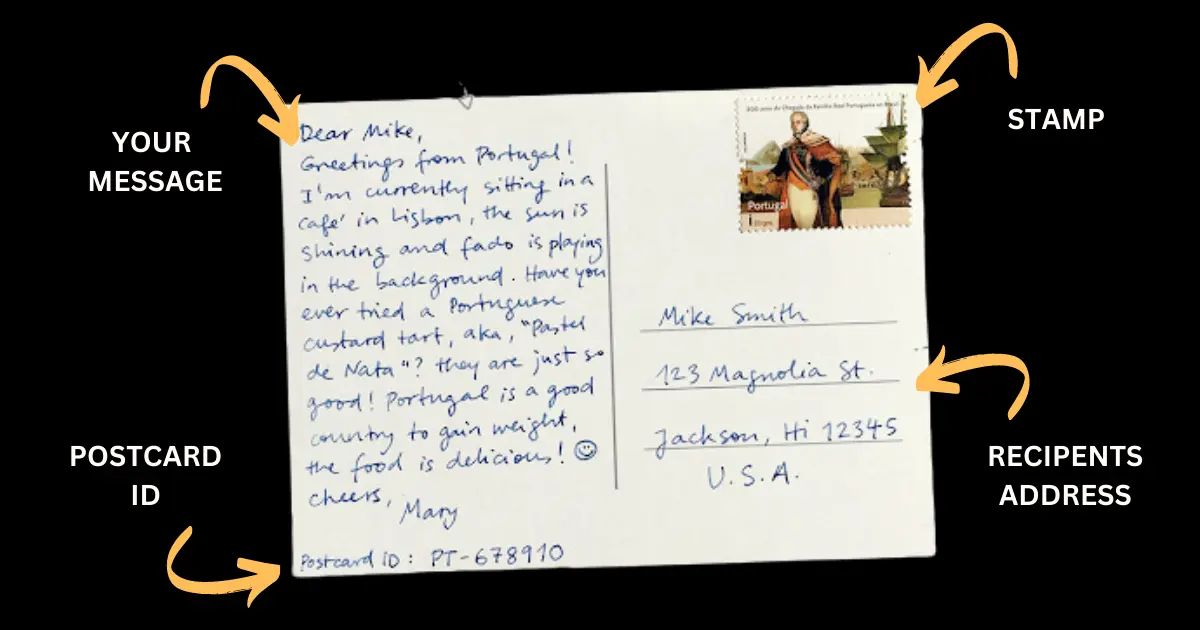 YOUR
MESSAGE
STAMP
POSTCARD
ID
RECIPENTS
ADDRESS
Dear Mike,
Greetings from Portugal!
I'm currently sitting in a
café in Lisbon, the sun is
shining and fado is playing
in the background. Have you
ever tried a Portuguese
custard tart, aka, "Pastel
de Nata"? they are just so
good! Portugal is a good
country to gain weight,
the food is delicious! ☺
cheers,
Mary
Postcard iD: PT-678910
800 anos da Chegada da Família Real Portuguesa ao Brasil
Portugal
Mike Smith
123 Magnolia St.
Jackson, Hi 12345
U.S.A.